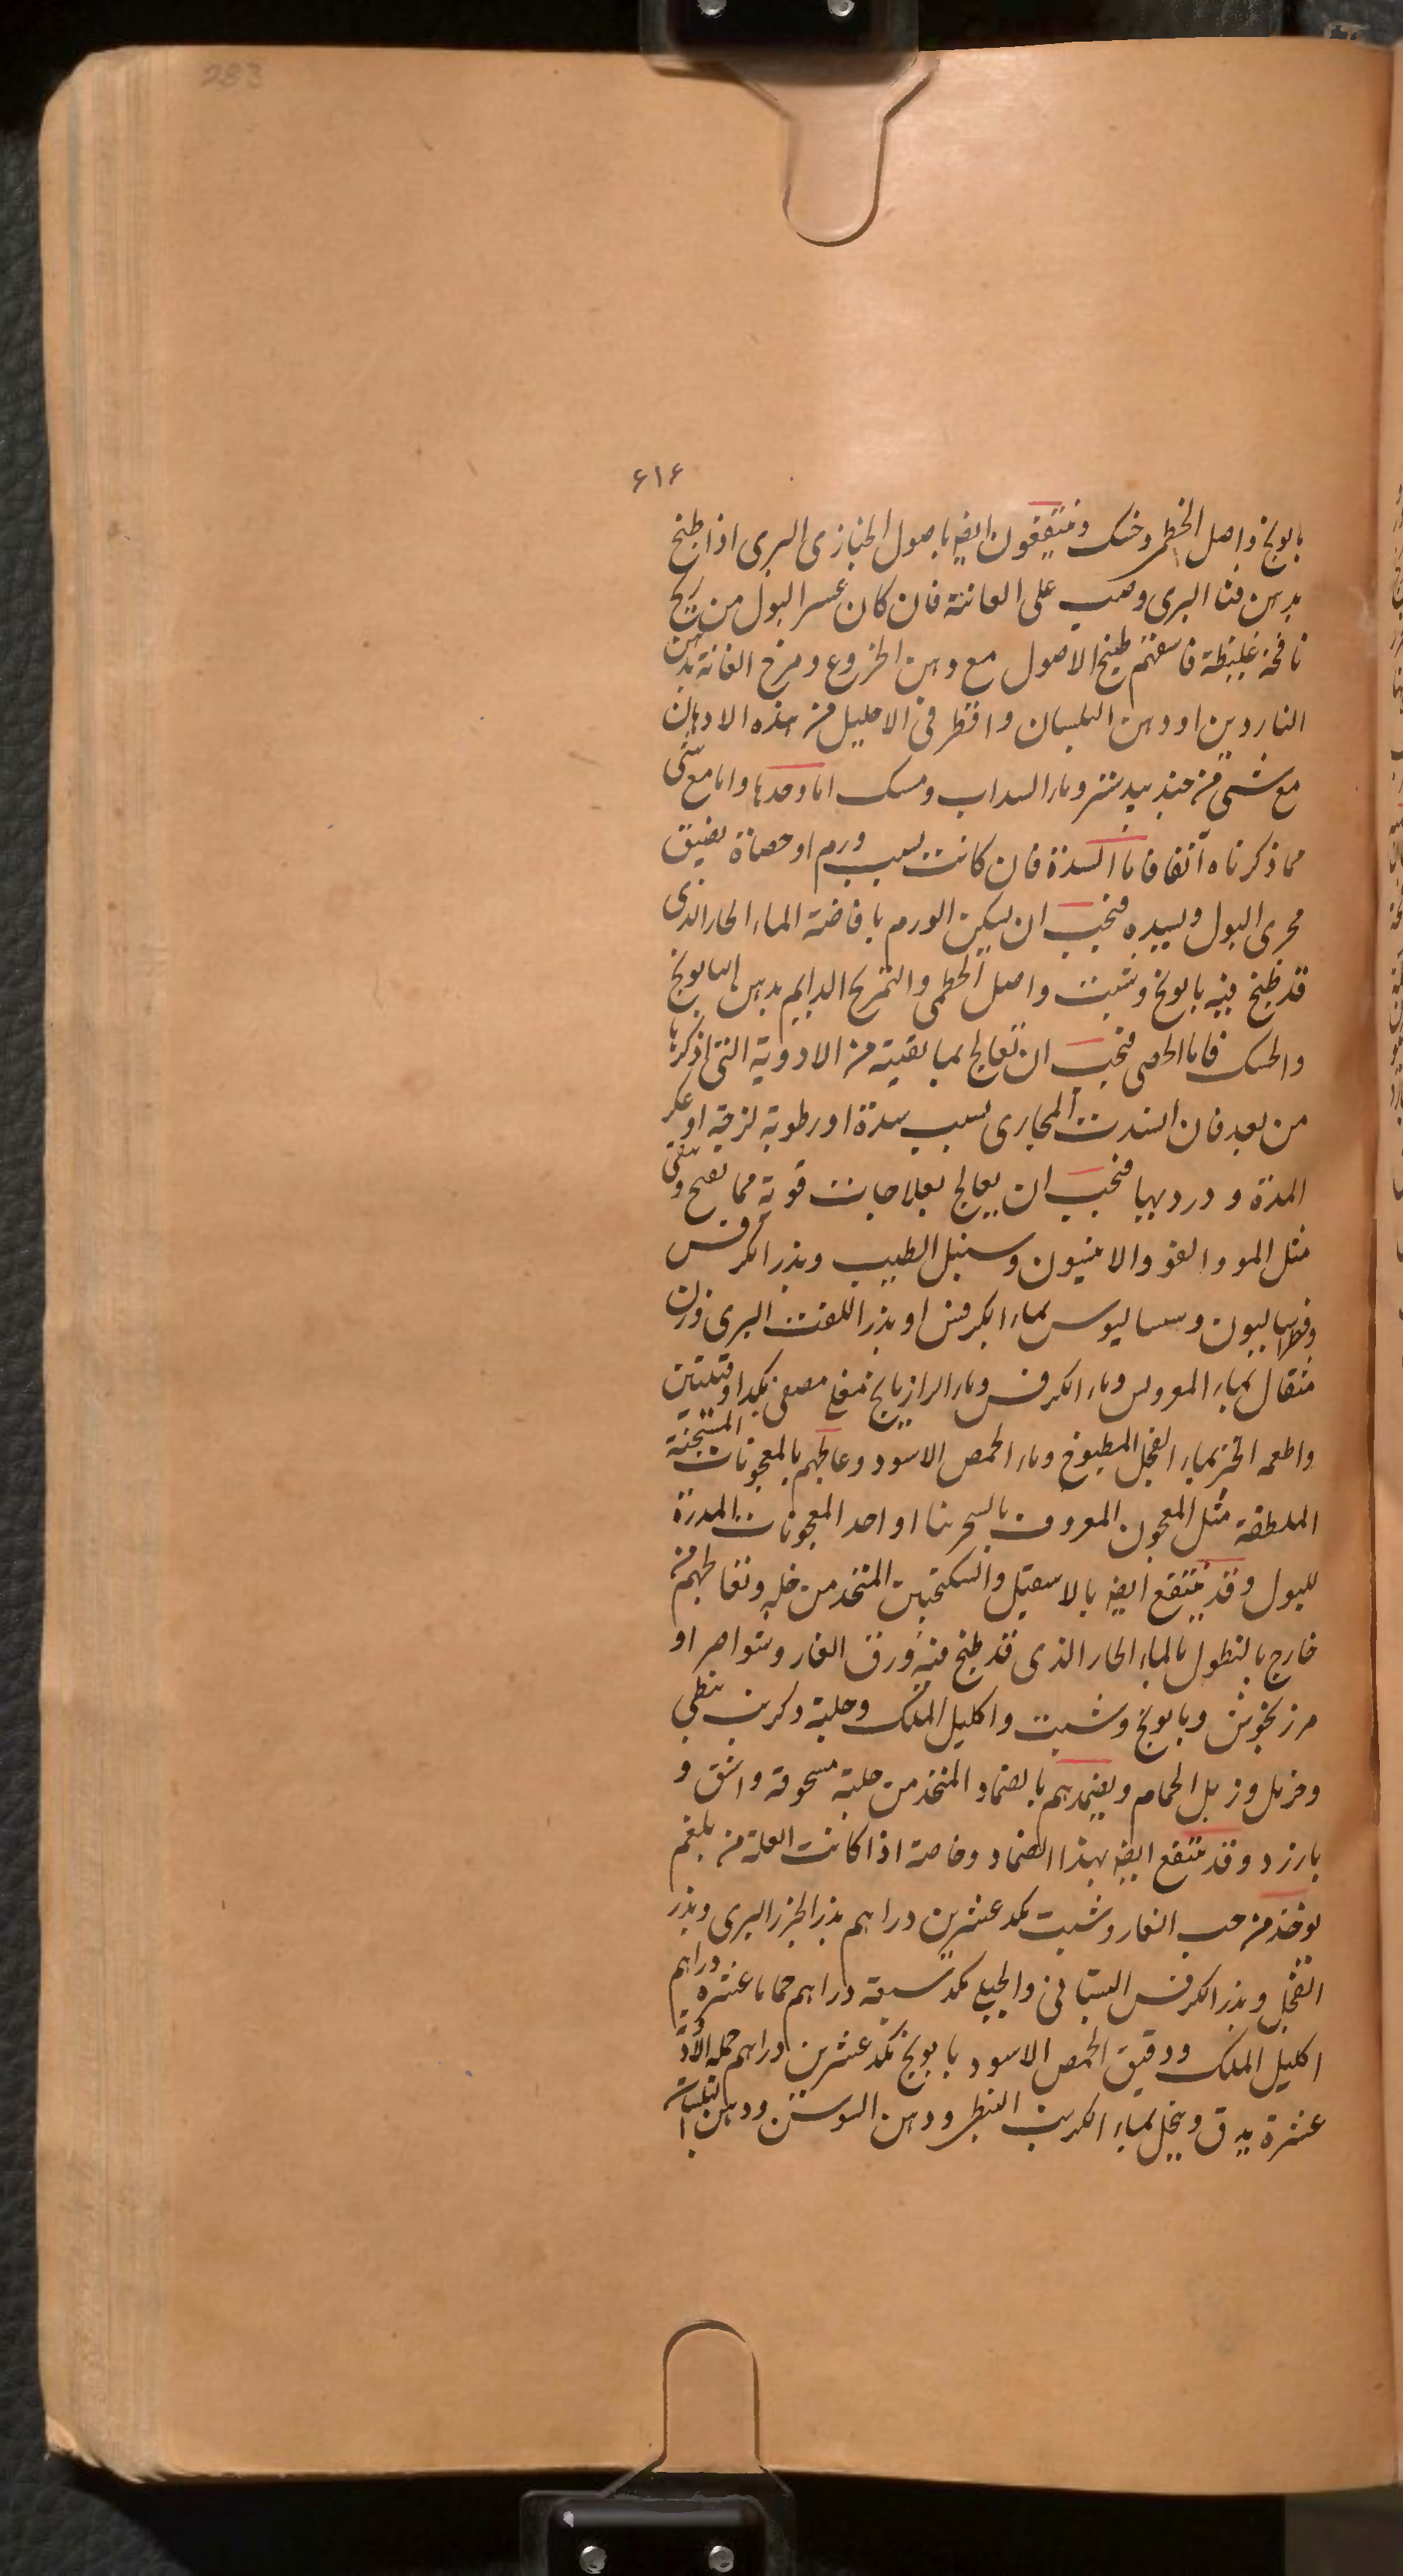 283
۶۱۶
بابونج واصل الخطمی وخسک ومنتفعون ایضا باصول الخبازی البری اذا طبخ
بدهن قثا البری وصب علی العانة فان کان عسر البول من ریح
نافخة غلیظة فاسقهم طبیخ الاصول مع دهن الخروع ومرخ العانة بدهن
الناردین او دهن البلسان واقطر فی الاحلیل من هذه الادهان
مع شئ من جندبیدستر وماء السداب ومسک اما وحدها واما مع شئ
مما ذکرناه آنفا فاما السدة فان کانت بسبب ورم او حصاة یضیق
مجری البول ویسده فیجب ان یسکن الورم بافاضة الماء الحار الذی
قد طبخ فیه بابونج وشبت واصل الخطمی والتمریخ الدایم بدهن البابونج
والحسک فاما الحصی فیجب ان تعالج بما بقیته من الادویة التی اذکرها
من بعد فان انسدت المجاری بسبب سدة او رطوبة لزجة او عکر
المدة ودردیها فیجب ان یعالج بعلاجات قویة مما تفتح وتنقی
مثل المو والفو والانیسون وسنبل الطیب وبذر الکرفس
وفطراسالیون وسسالیوس بماء الکرفس او بذر اللفت البری وزن
مثقال بماء العروس وماء الکرفس وماء الرازیانج مغلی مصفی بکد اوقیتین
واطعمه الخبز بماء الفجل المطبوخ وماء الحمص الاسود وعالجهم بالمعجونات المسخنة
الملطفة مثل المعجون المعروف بالسجرینا او احد المعجونات المدرة
للبول وقد ینتفع ایضا بالاسقیل والسکنجبین المتخذ من خله ونعالجهم من
خارج بالنطول بالماء الحار الذی قد طبخ فیه ورق الغار وشواصر او
مرزنجوش وبابونج وشبت واکلیل الملک وحلبة وکرنب نبطی
وخردل وزبل الحمام ویضمدهم بالضماد المتخذ من حلبة مسحوقة واشق و
بارزد وقد ینتفع ایضا بهذا الضماد وخاصة اذا کانت العلة من بلغم
یوخذ من حب الغار وشبت بکد عشرین دراهم بذر الجزر البری وبذر
الفجل وبذر الکرفس البستانی والجبلی بکد سبعة دراهم حماما عشرة دراهم
اکلیل الملک ودقیق الحمص الاسود بابونج بکد عشرین دراهم جملة الادویة
عشرة یدق وینخل بماء الکرنب النبطی ودهن السوسن ودهن البلسان